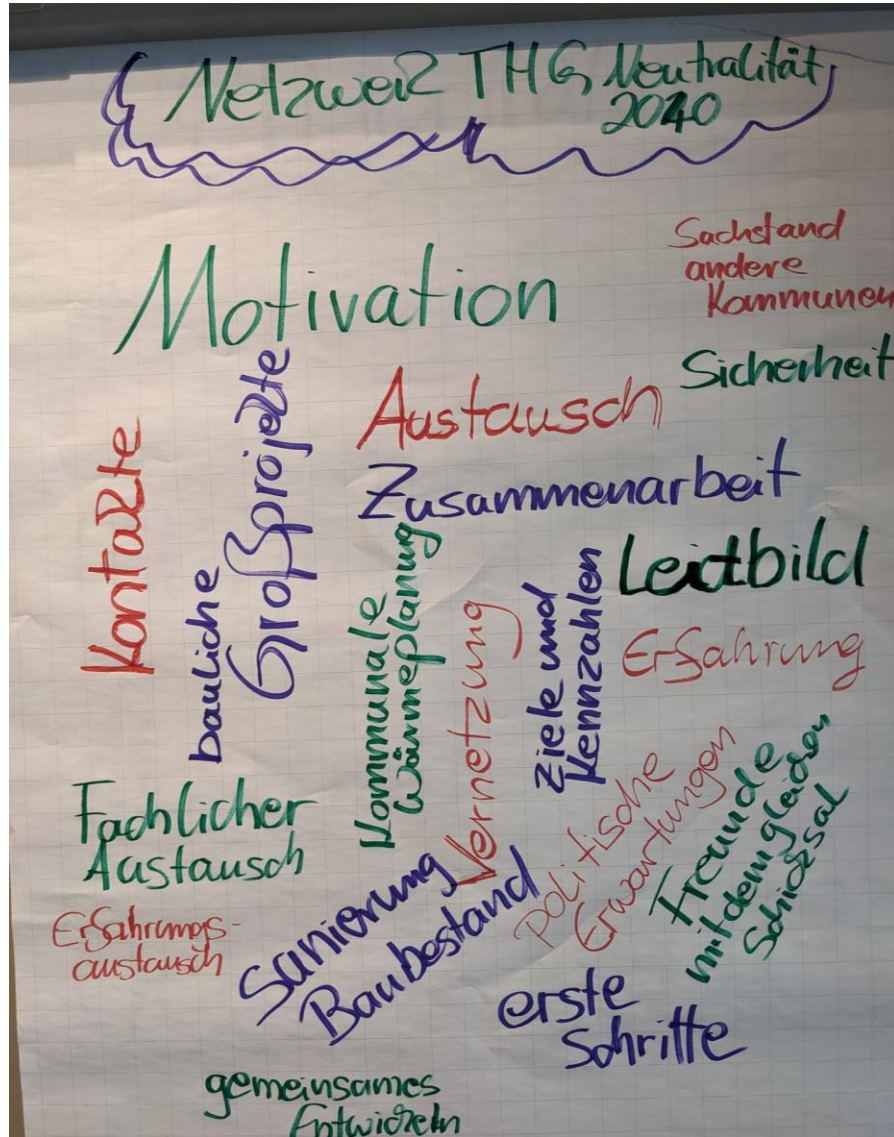 Netzwerk THG Neutralität
2040
Motivation
Sachstand
andere
Kommunen
Sicherheit
Austausch
Zusammenarbeit
Kontakte
bauliche
Großprojekte
Kommunale
Wärmeplanung
Vernetzung
Ziele und
Kennzahlen
Leitbild
Erfahrung
Fachlicher
Austausch
Erfahrungs-
austausch
Sanierung
Baubestand
politische
Erwartungen
Freunde
mit dem gleichen
Schicksal
erste
Schritte
gemeinsames
Entwickeln